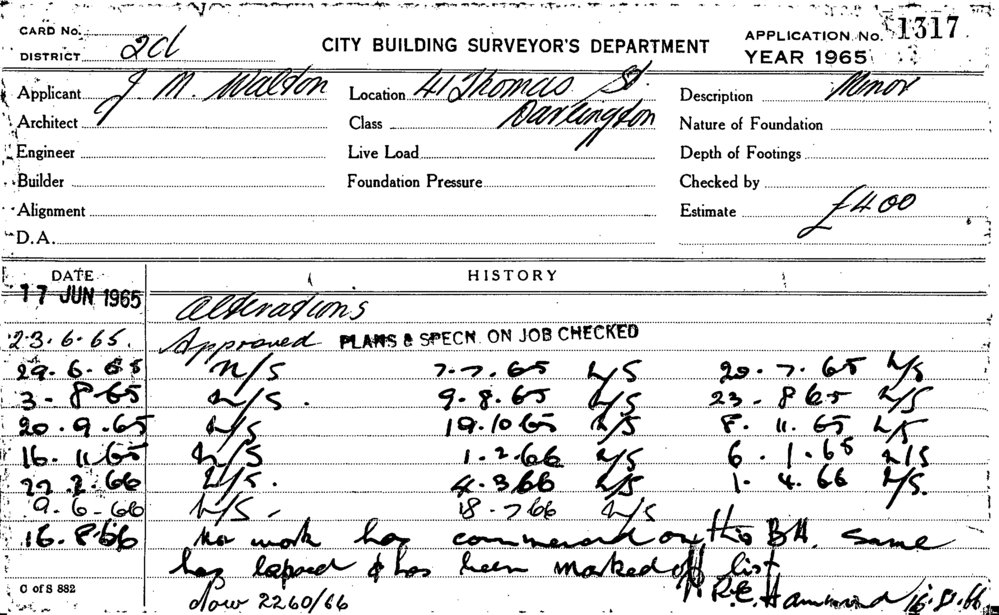 CARD No.
DISTRICT 2d
CITY BUILDING SURVEYOR'S DEPARTMENT
APPLICATION No. 1317
YEAR 1965
Applicant J M. Walton
Location 41 Thomas St.
Darlington
Description Minor
Architect
Class
Nature of Foundation
Engineer
Live Load
Depth of Footings
Builder
Foundation Pressure
Checked by
Alignment
Estimate £400
D.A.
DATE
HISTORY
17 JUN 1965
Alterations
23.6.65. Approved PLANS & SPECN. ON JOB CHECKED
29.6.65 N/S 7.7.65 N/S 20.7.65 N/S
3-8-65 N/S. 9.8.65 N/S 23-8 65 N/S
20.9.65 N/S 19.10 65 N/S 8.11.65 N/S
16.11.65 N/S 1.2.66 N/S 6.1.65 N/S
22.2.66 N/S. 4.3 66 N/S 1.4.66 N/S.
9.6-66 N/S- 18-7 66 N/S
16.8.66 No work has commenced on this BA. Same
has lapsed & has been marked off list
C of S 882
now 2260/66
R.E. Hammond 16.8.66